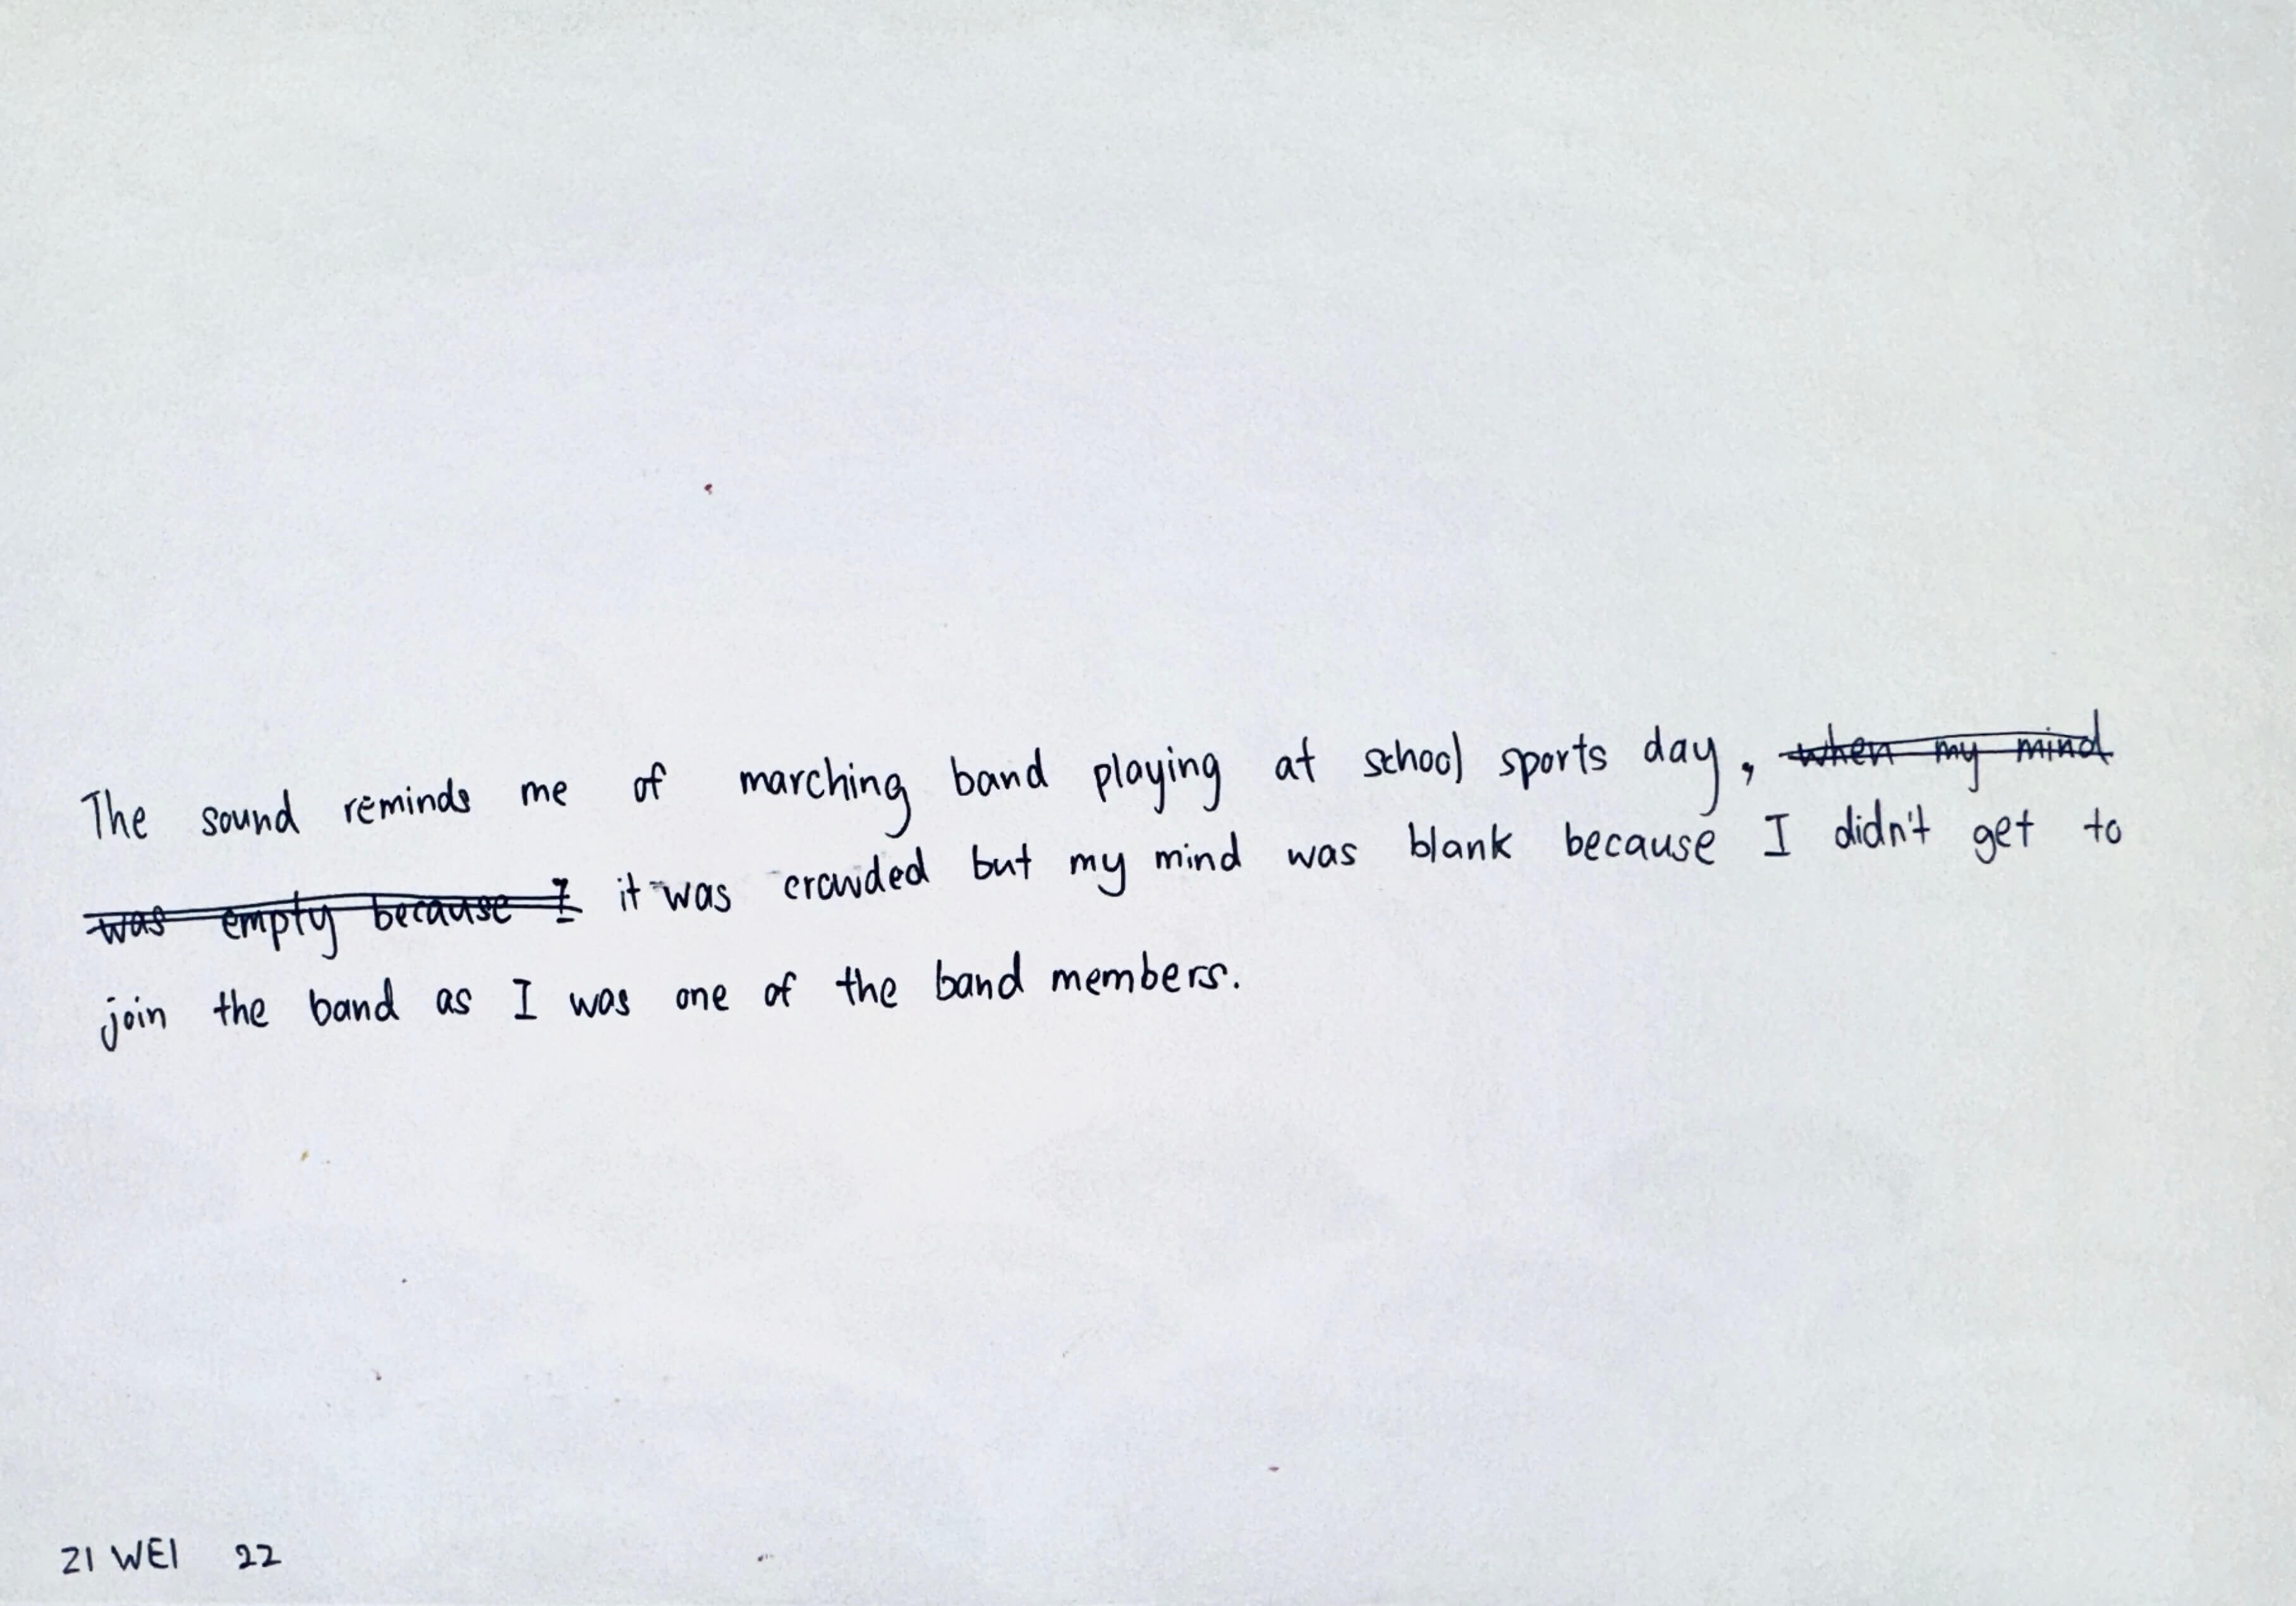 The sound reminds me of marching band playing at school sports day, when my mind
was empty because I it was crowded but my mind was blank because I didn't get to
join the band as I was one of the band members.
ZI WEI 22